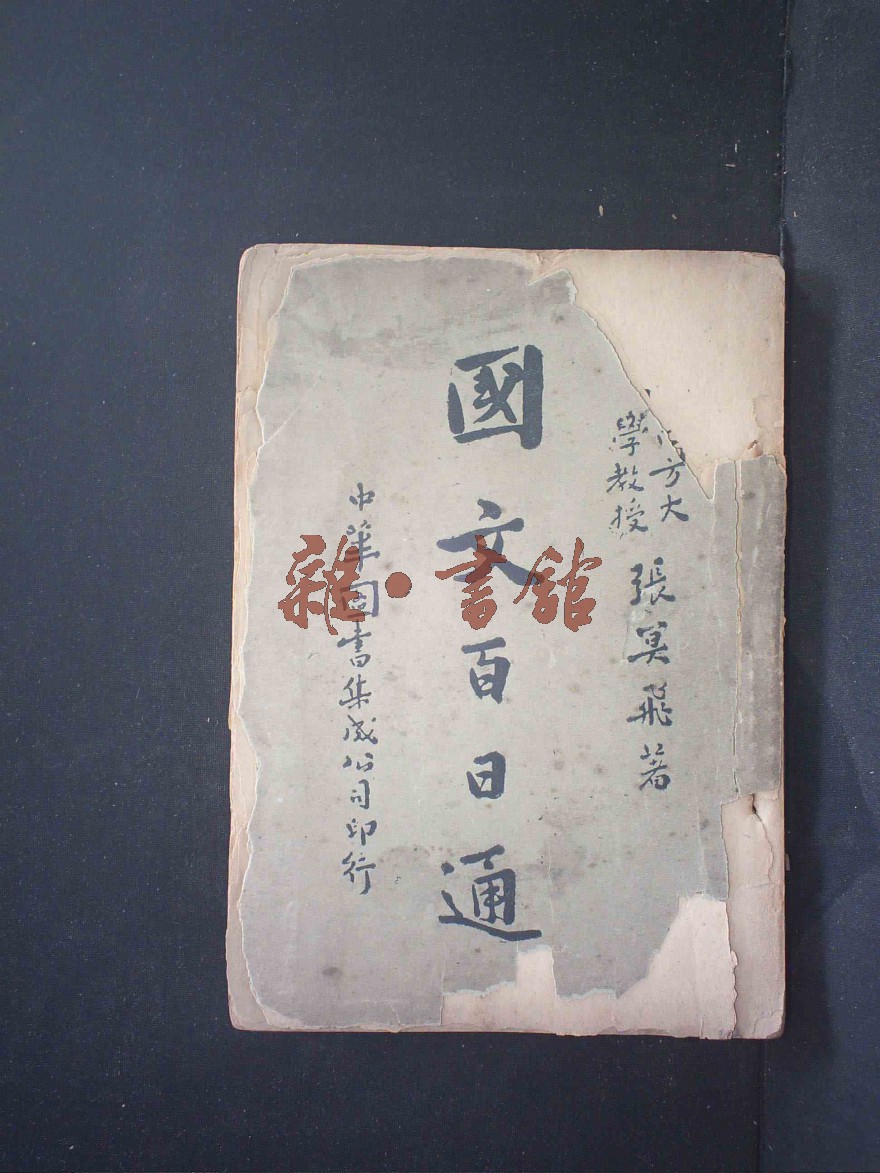 南方大
學教授
張冥飛著
國文百日通
中華圖書集成公司印行
雜·書館